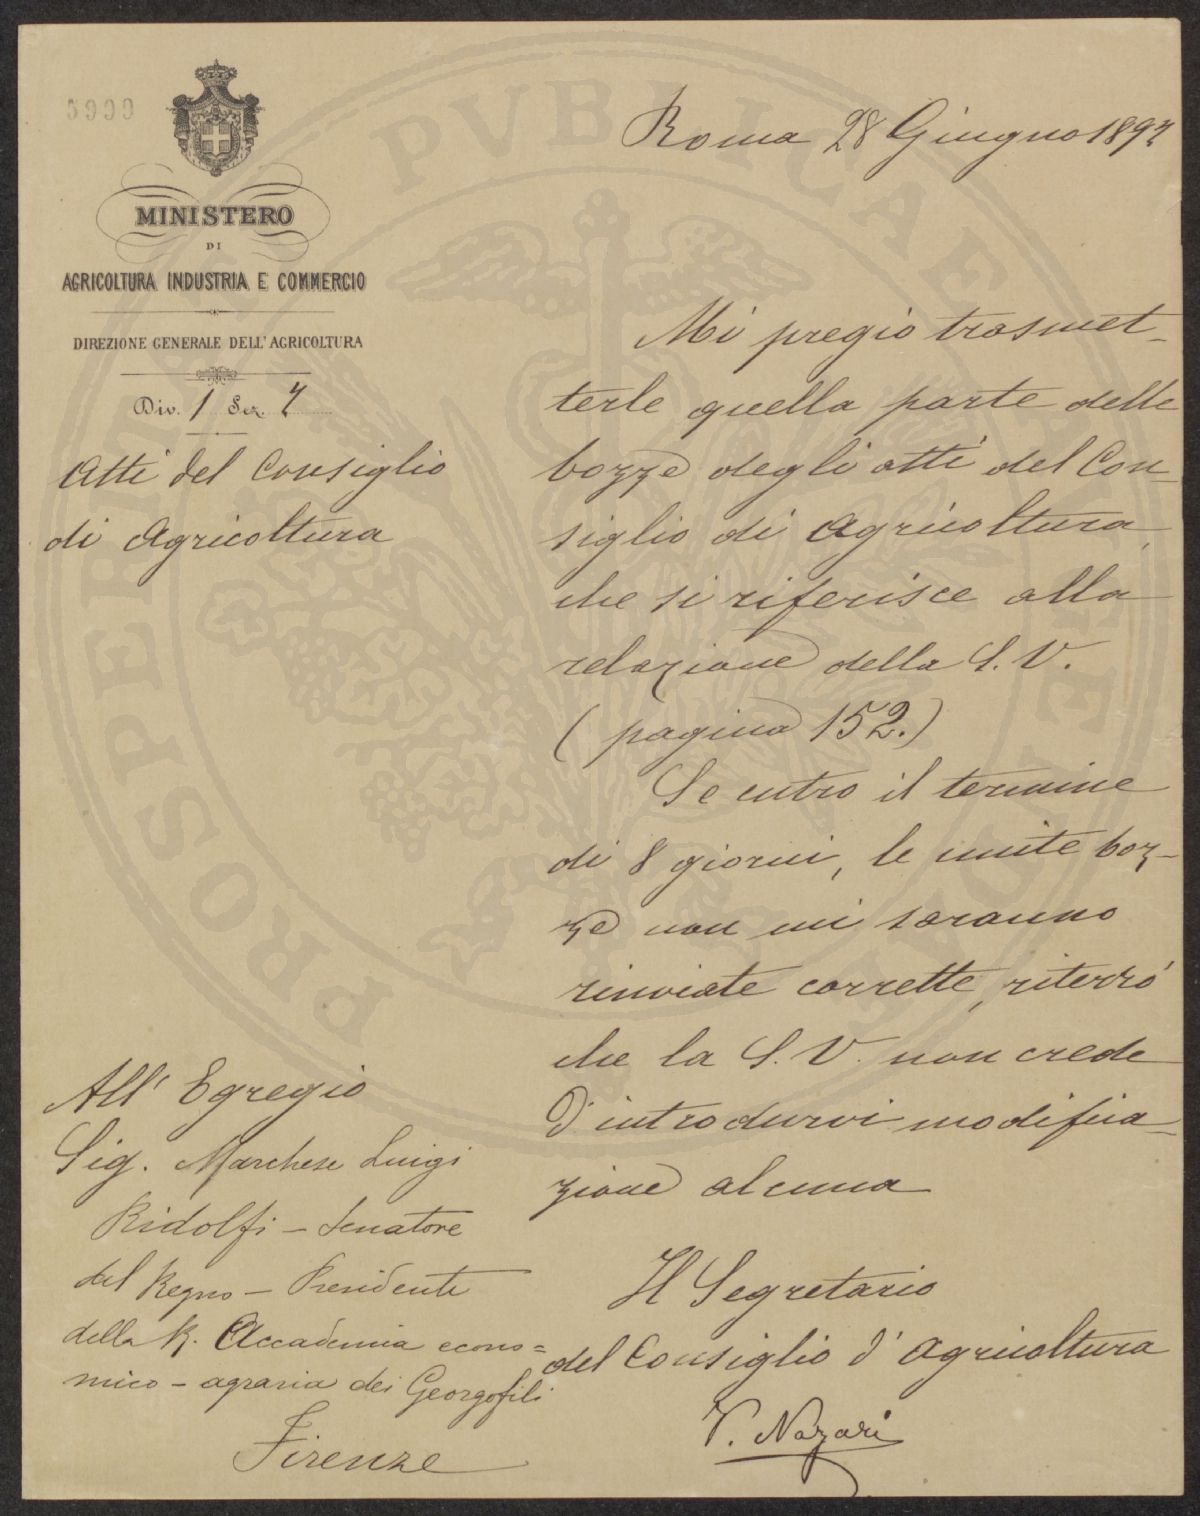 5999
MINISTERO
DI
AGRICOLTURA INDUSTRIA E COMMERCIO
DIREZIONE GENERALE DELL'AGRICOLTURA
Div. 1 Sez. 4
Atti del Consiglio
di Agricoltura
Roma 28 Giugno 1897
Mi pregio trasmet-
terle quella parte delle
bozze degli atti del Con-
siglio di Agricoltura,
che si riferisce alla
relazione della S. V.
(pagina 152.)
Se entro il termine
di 8 giorni, le unite boz-
ze non mi saranno
rinviate corrette, riterrò
che la S. V. non crede
d'introdurvi modifica-
zione alcuna
Il Segretario
del Consiglio d'Agricoltura
V. Nazari
All'Egregio
Sig. Marchese Luigi
Ridolfi - Senatore
del Regno - Presidente
della R. Accademia econo=
mico - agraria dei Georgofili
Firenze
PROSPERITATI PVBLICAE AVGENDAE